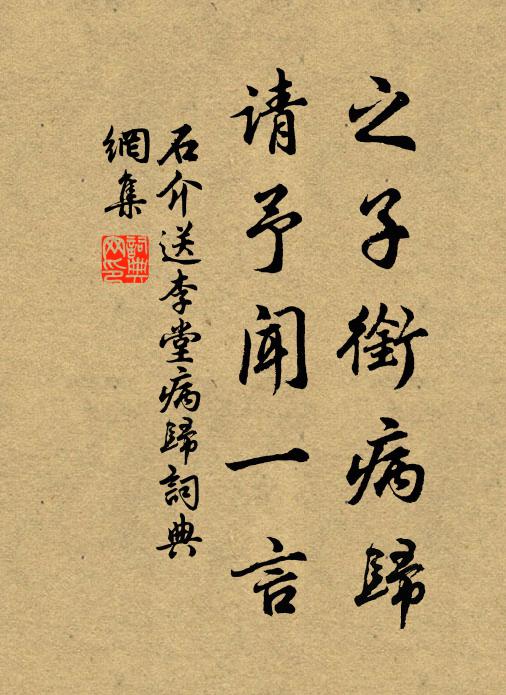 之子銜病歸
请予闻一言
石介送李堂病歸詞典
網集
詞典网印